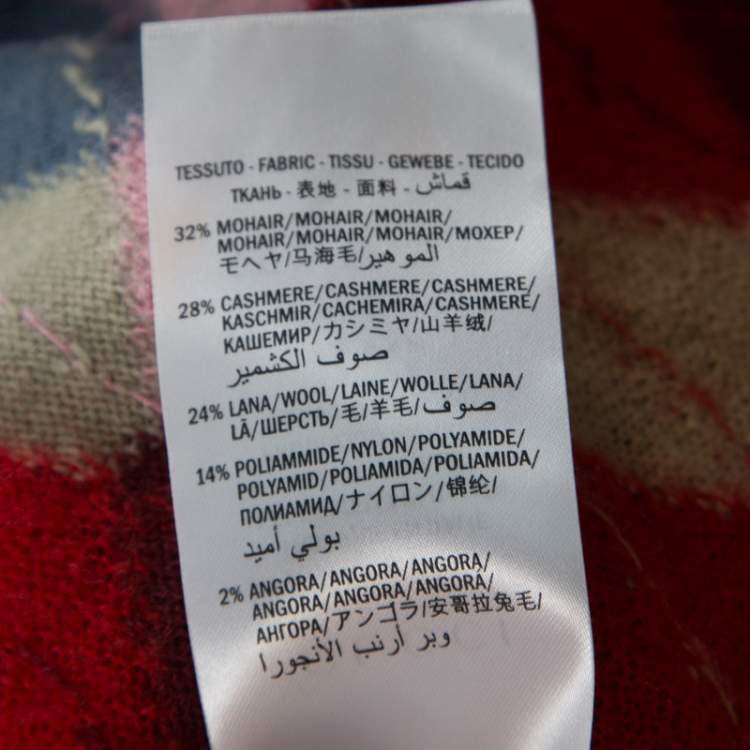 TESSUTO - FABRIC - TISSU - GEWEBE - TECIDO
ТКАНЬ - 表地 - 面料 - قماش
32% MOHAIR/MOHAIR/MOHAIR/
MOHAIR/MOHAIR/MOHAIR/МОХЕР/
モヘヤ/马海毛/الموهير
28% CASHMERE/CASHMERE/CASHMERE/
KASCHMIR/CACHEMIRA/CASHMERE/
КАШЕМИР/カシミヤ/山羊绒/
صوف الكشمير
24% LANA/WOOL/LAINE/WOLLE/LANA/
LÃ/ШЕРСТЬ/毛/羊毛/صوف
14% POLIAMMIDE/NYLON/POLYAMIDE/
POLYAMID/POLIAMIDA/POLIAMIDA/
ПОЛИАМИД/ナイロン/锦纶/
بولي أميد
2% ANGORA/ANGORA/ANGORA/
ANGORA/ANGORA/ANGORA/
АНГОРА/アンゴラ/安哥拉兔毛/
وبر أرنب الأنجورا